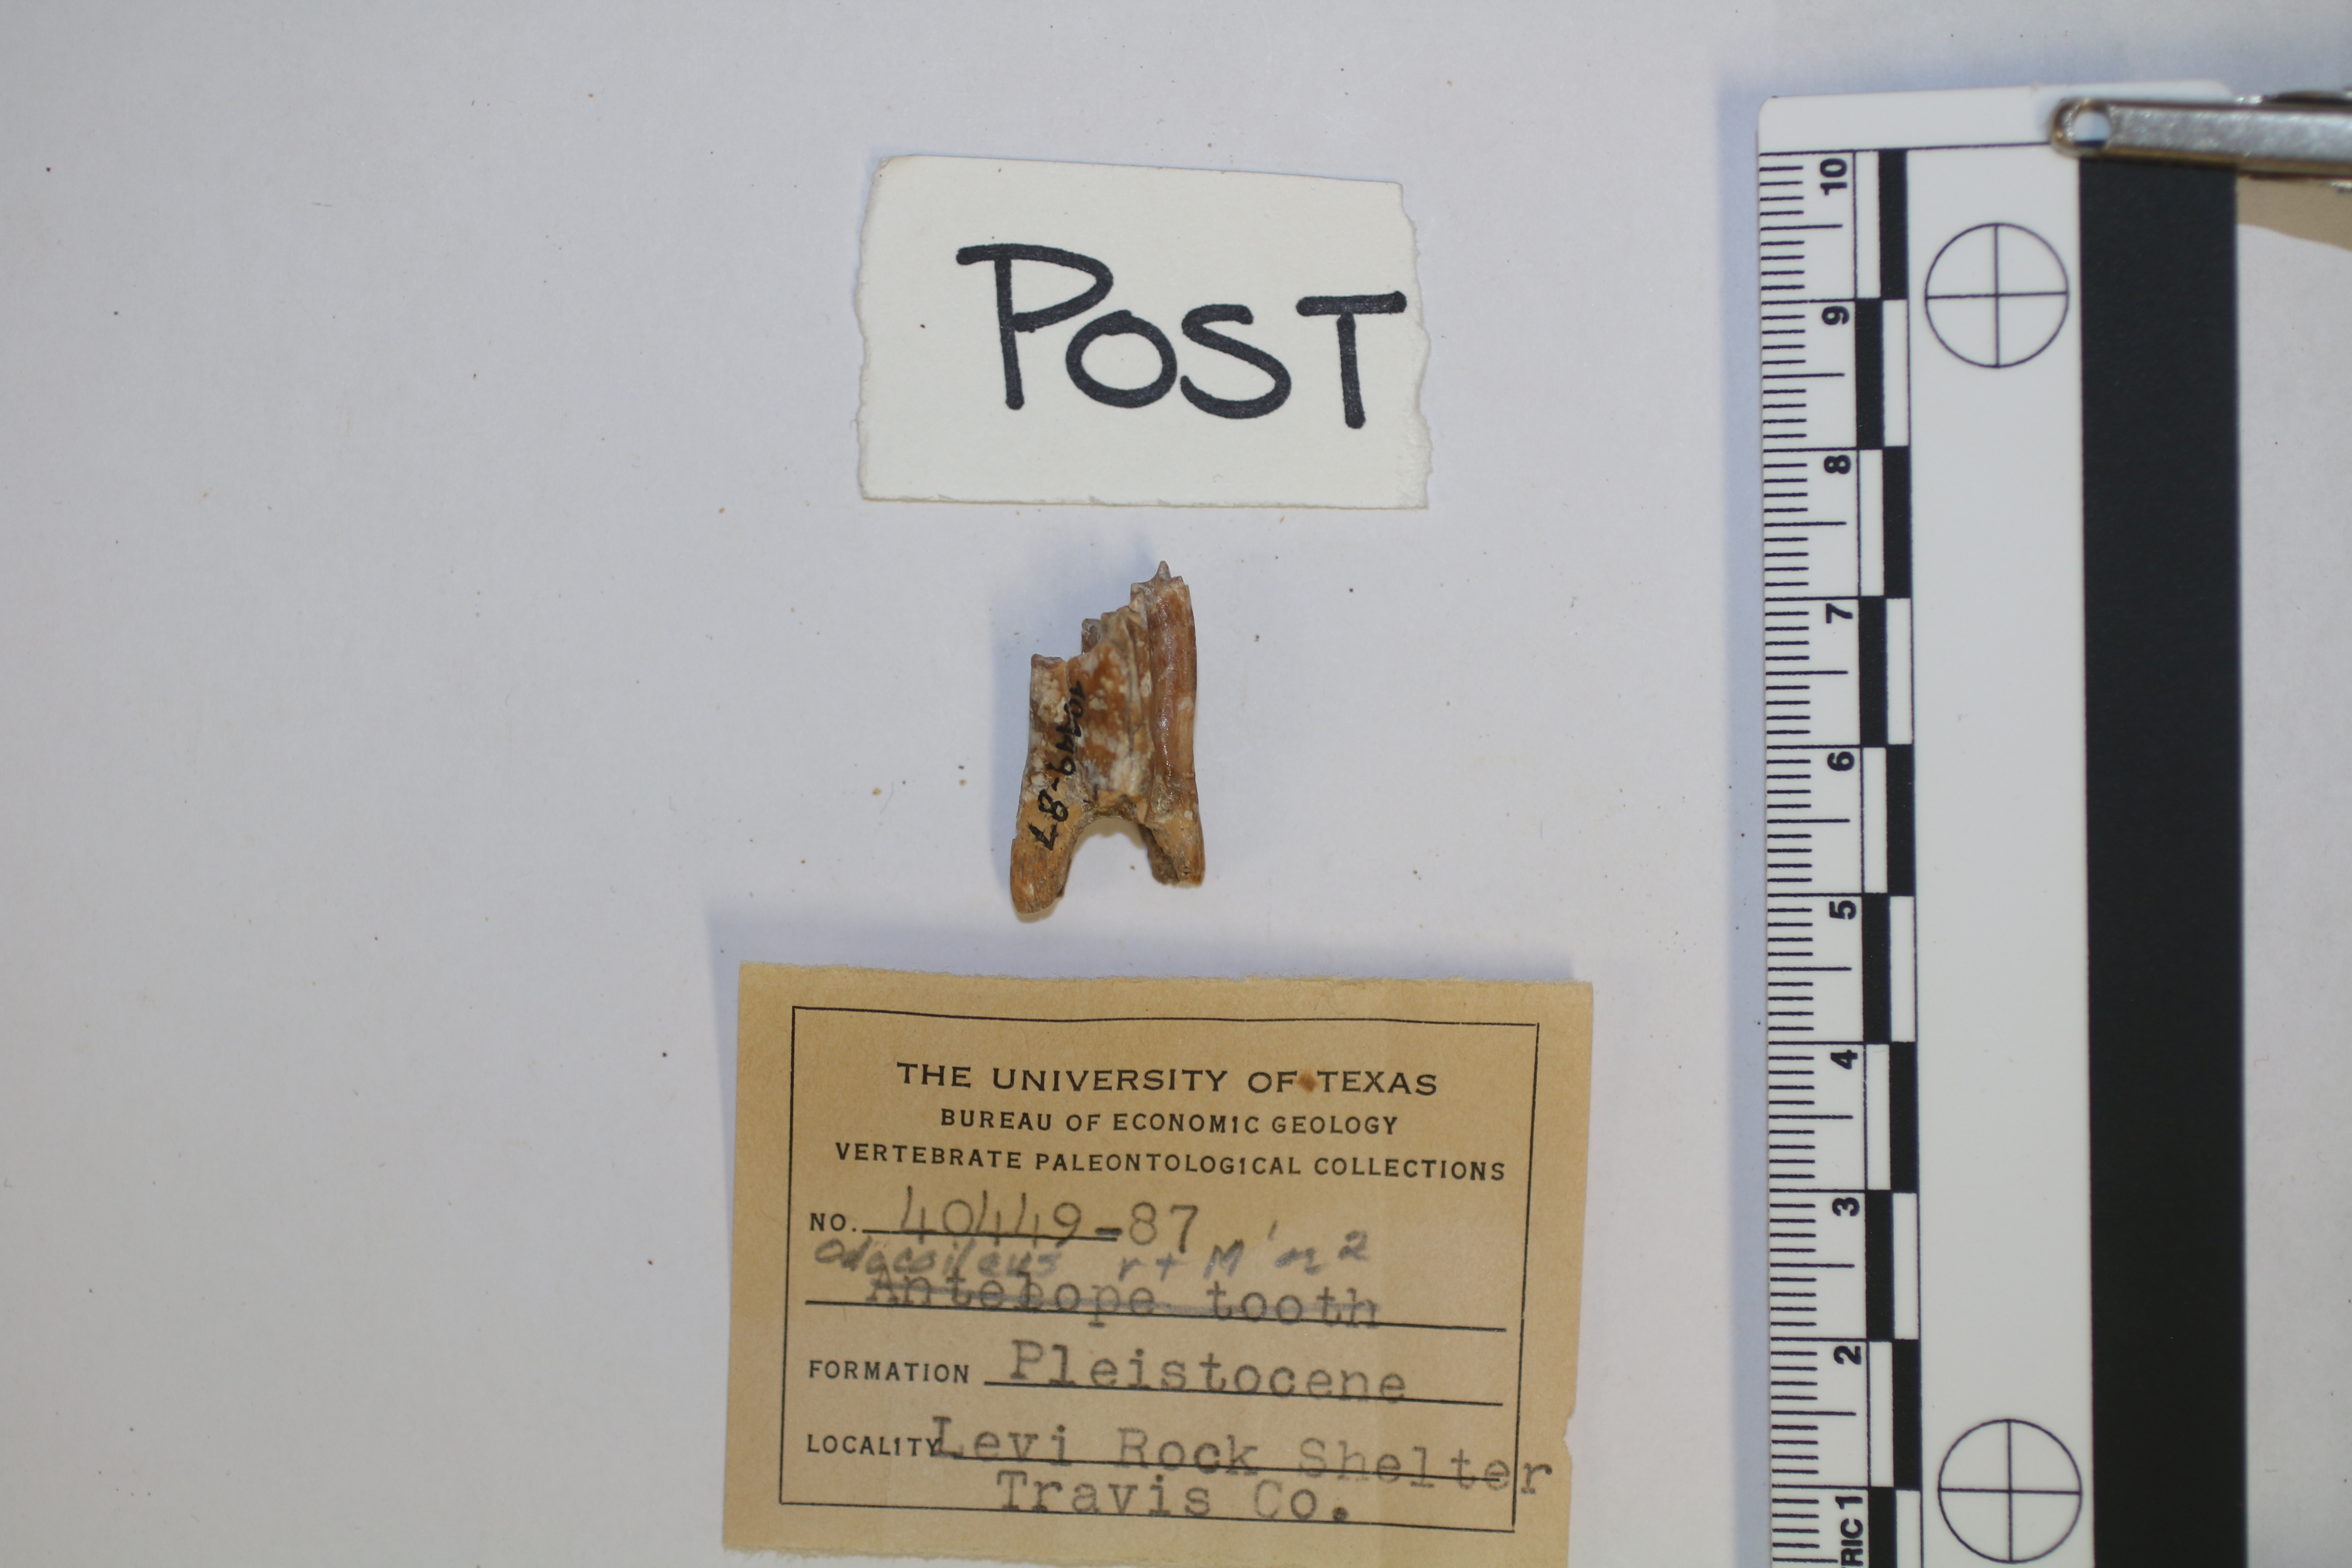 THE UNIVERSITY OF TEXAS
BUREAU OF ECONOMIC GEOLOGY
VERTEBRATE PALEONTOLOGICAL COLLECTIONS
NO. 40449-87
rt M' or 2
Antelope tooth
FORMATION Pleistocene
LOCALITY Levi Rock Shelter
Travis Co.
40449-87
POST
RIC 1 2 3 4 5 6 7 8 9 10